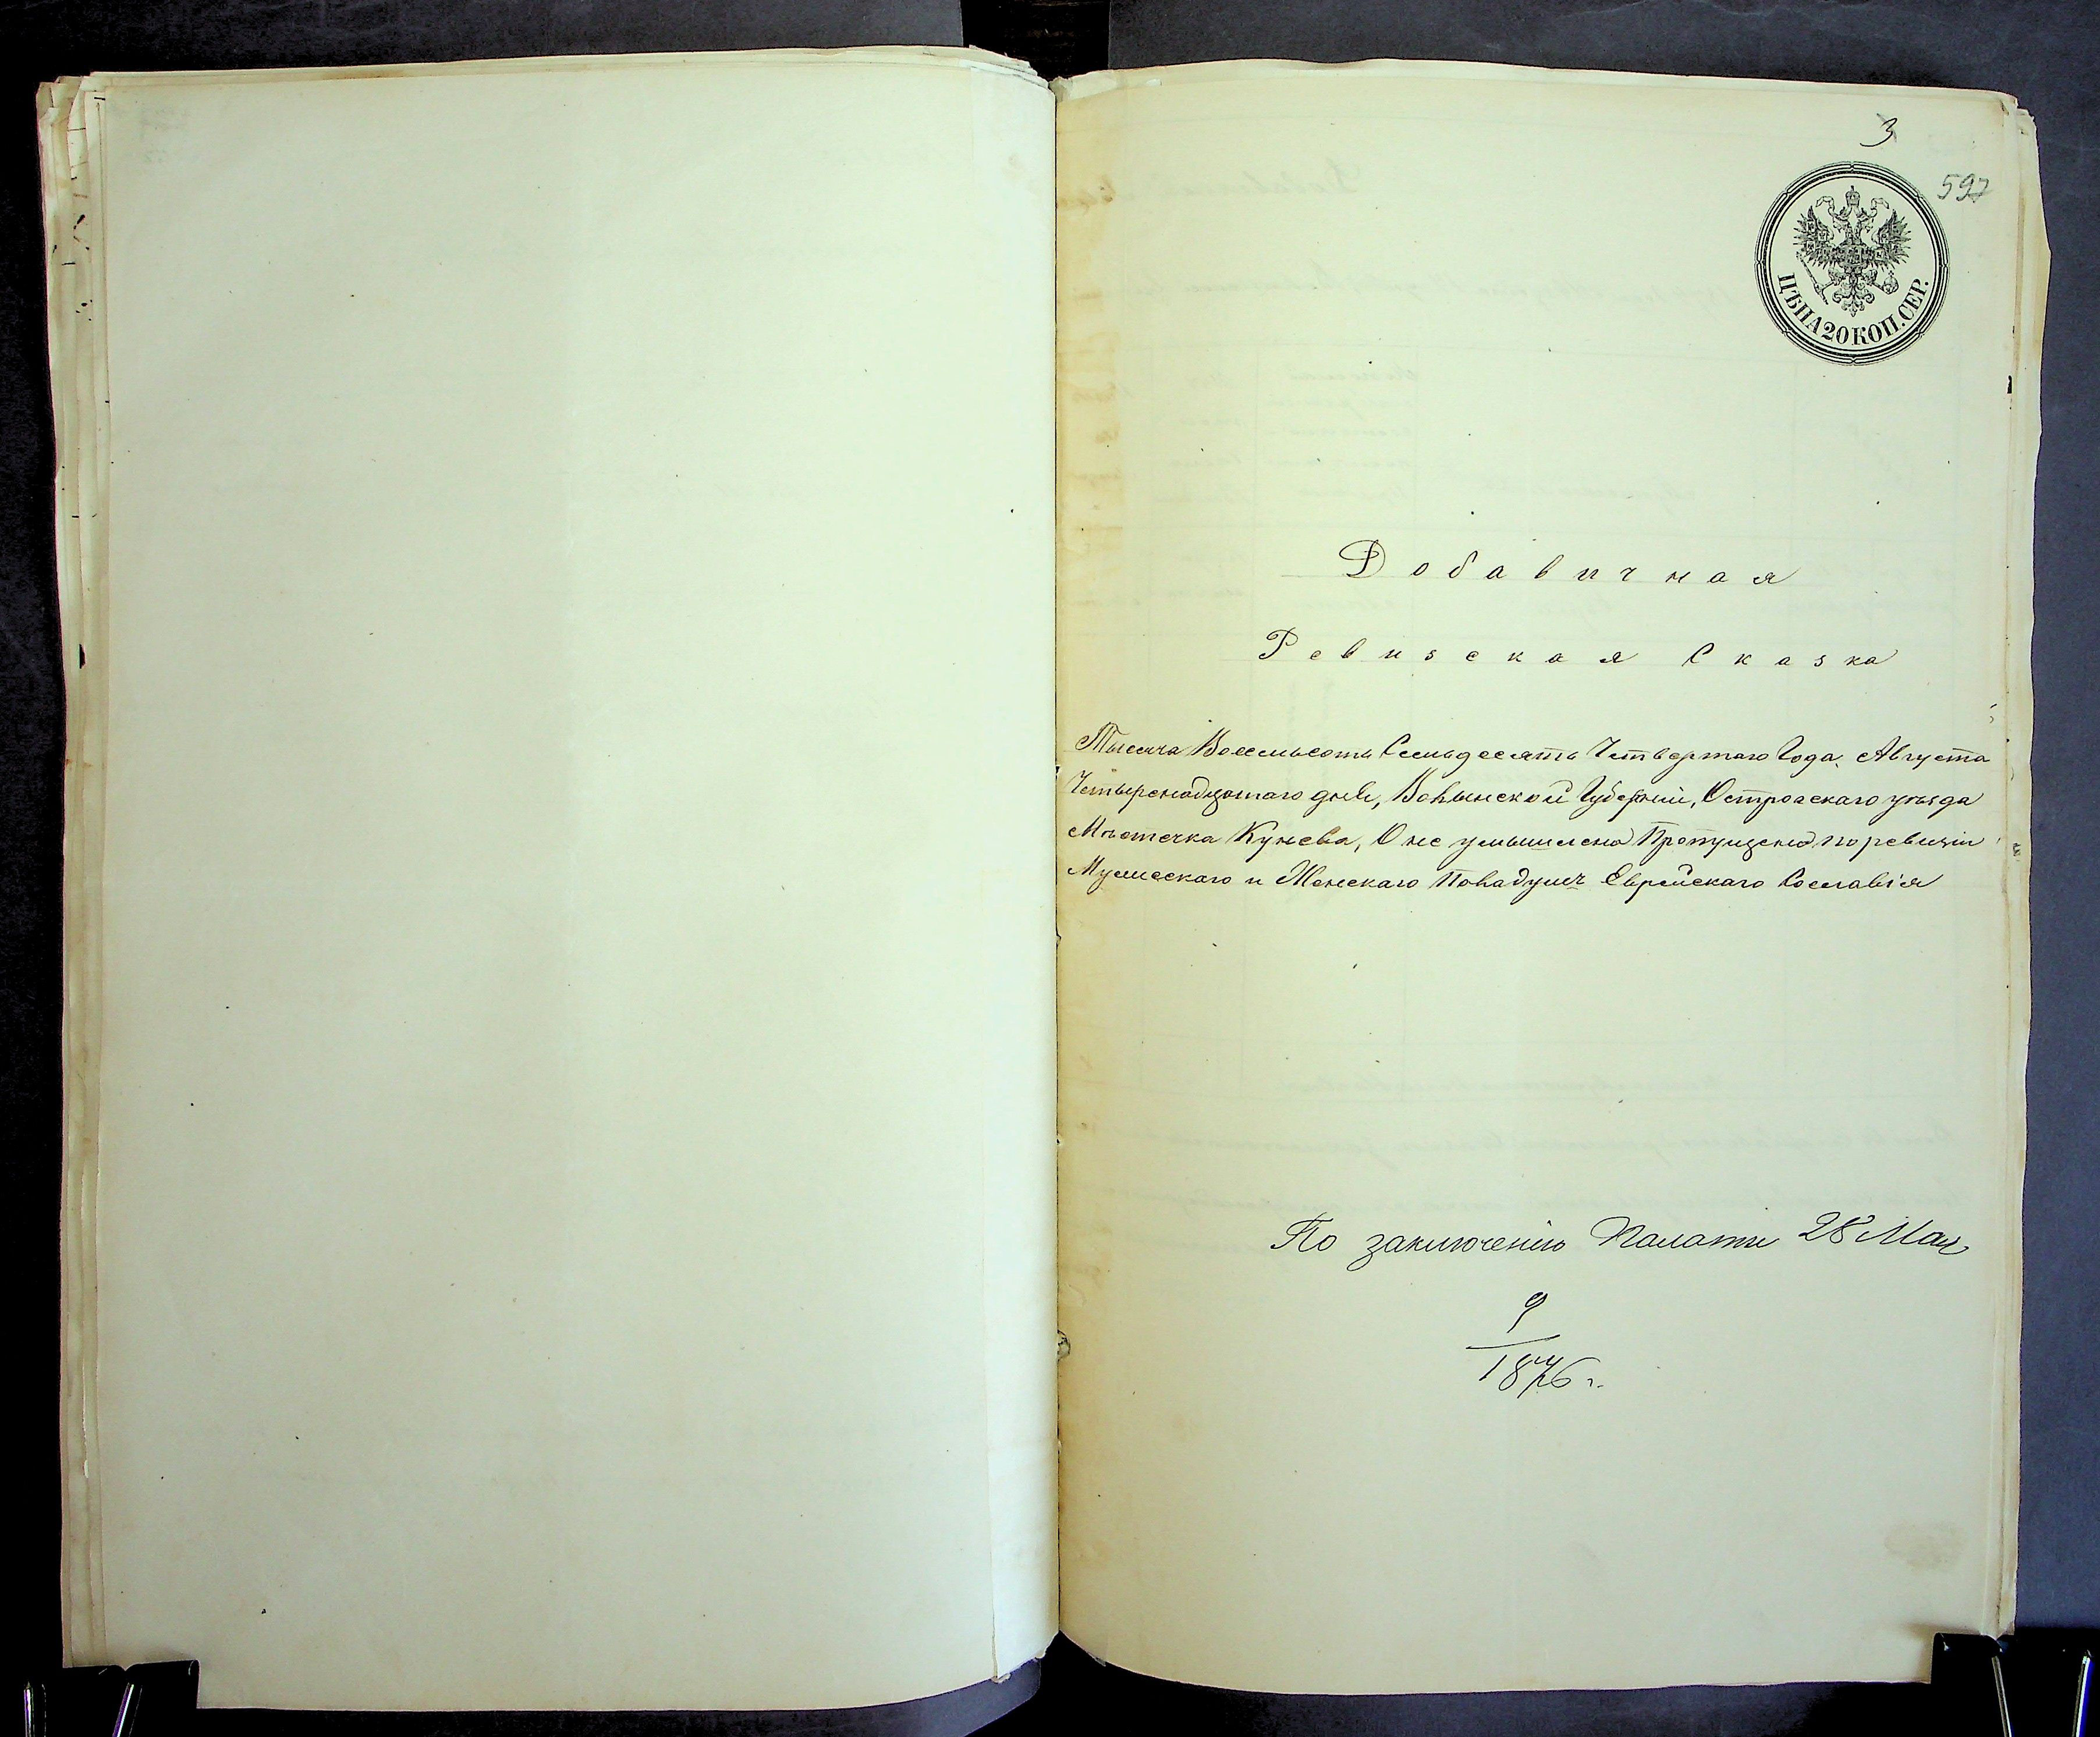 3
597
ЦѢНА 20 КОП. СЕР.
Добавичная
Ревизская Сказка
Тысяча Восемьсотъ Семьдесятъ Четвертаго Года. Августа
Четыренадцатаго дня, Волынской Губерніи, Острогскаго уѣзда
Мѣстечка Кунева, О не умышлено Пропущено по ревизіи
Мужескаго и Женскаго Пола душъ Еврейскаго Сословія
По заключенію Палаты 28 Мая
9
1876 г.